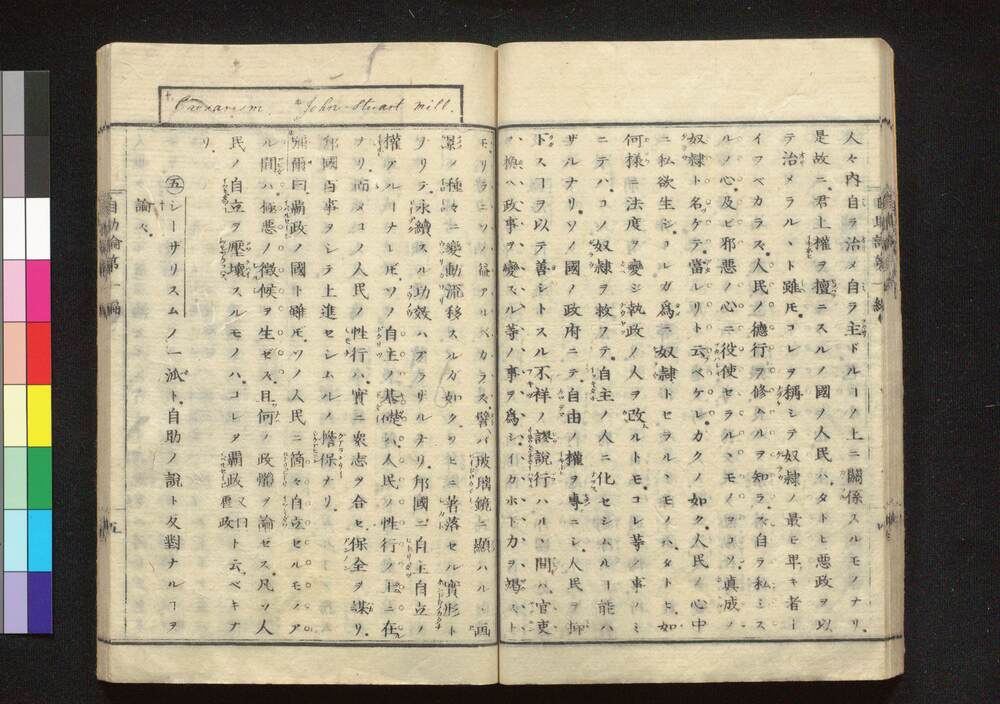 人々內自ラ治メ自ラ主ドルヿノ上ニ關係スルモノナリ.
是故ニ.君上權ヲ擅ニスルノ國ノ人民ハ.タトヒ惡政ヲ以
テ治メラルヽト雖モ.コレヲ稱シテ奴隷ノ最モ卑キ者ト
イフベカラズ.人民ノ德行ヲ修ムルヲ知ラズ.自ラ私ミス
ルノ心.及ビ邪惡ノ心ニ役使セラルヽモノヲコソ.眞成ノ
奴隷ト名ケテ當レリト云ベケレ.カクノ如ク.人民ノ心中
ニ私欲生シ.コレガ爲ニ奴隷トセラルヽモノハ.タトヒ.如
何樣ニ法度ヲ變ジ執政ノ人ヲ改ルトモ.コレ等ノ事ノミ
ニテハ.コノ奴隷ヲ救フテ.自主ノ人ニ化セシムルヿ能ハ
ザルナリ.ソノ國ノ政府ニテ.自由ノ權ヲ專ニシ.人民ヲ抑
ドスルヿヲ以テ善シトスル不祥ノ謬說行ハルヽ間ハ.官吏
ヲ換ヘ政事ヲ變ズル等ノ事ヲ爲シ.イカホド力ヲ竭スト
Caesarism. John Stuart mill.
モリラニソノ益アルベカラズ.譬バ玻璃鏡ニ顯ハルヽ画
景ノ種々ニ變動流移スルガ如ク.ツヒニ著落セル實形ト
ソリテ.永續スル功效ハアラザルナリ.邦國ニ自主自立ノ
權アルヿナレドモ.ソノ自主ノ基礎ハ.人民ノ性行ノ上ニ在
ナリ.而メコノ人民ノ性行ハ.實ニ衆志ヲ合セ.保全ヲ謀リ.
邦國百事ヲシテ上進セシムルノ擔保ナリ.
彌爾曰.霸政ノ國ト雖モ.ソノ人民ニ箇々自立セルモノノア
ル間ハ.極惡ノ徵候ヲ生ゼズ.且何ノ政體ヲ論ゼズ.凡ソ人
民ノ自立ヲ壓壞スルモノハ.コレヲ霸政又曰虐政ト云ベキナ
リ.
㊄シーサリスムノ一派ト.自助ノ說ト反對ナルヿヲ
論ズ.
自助論第一編
五